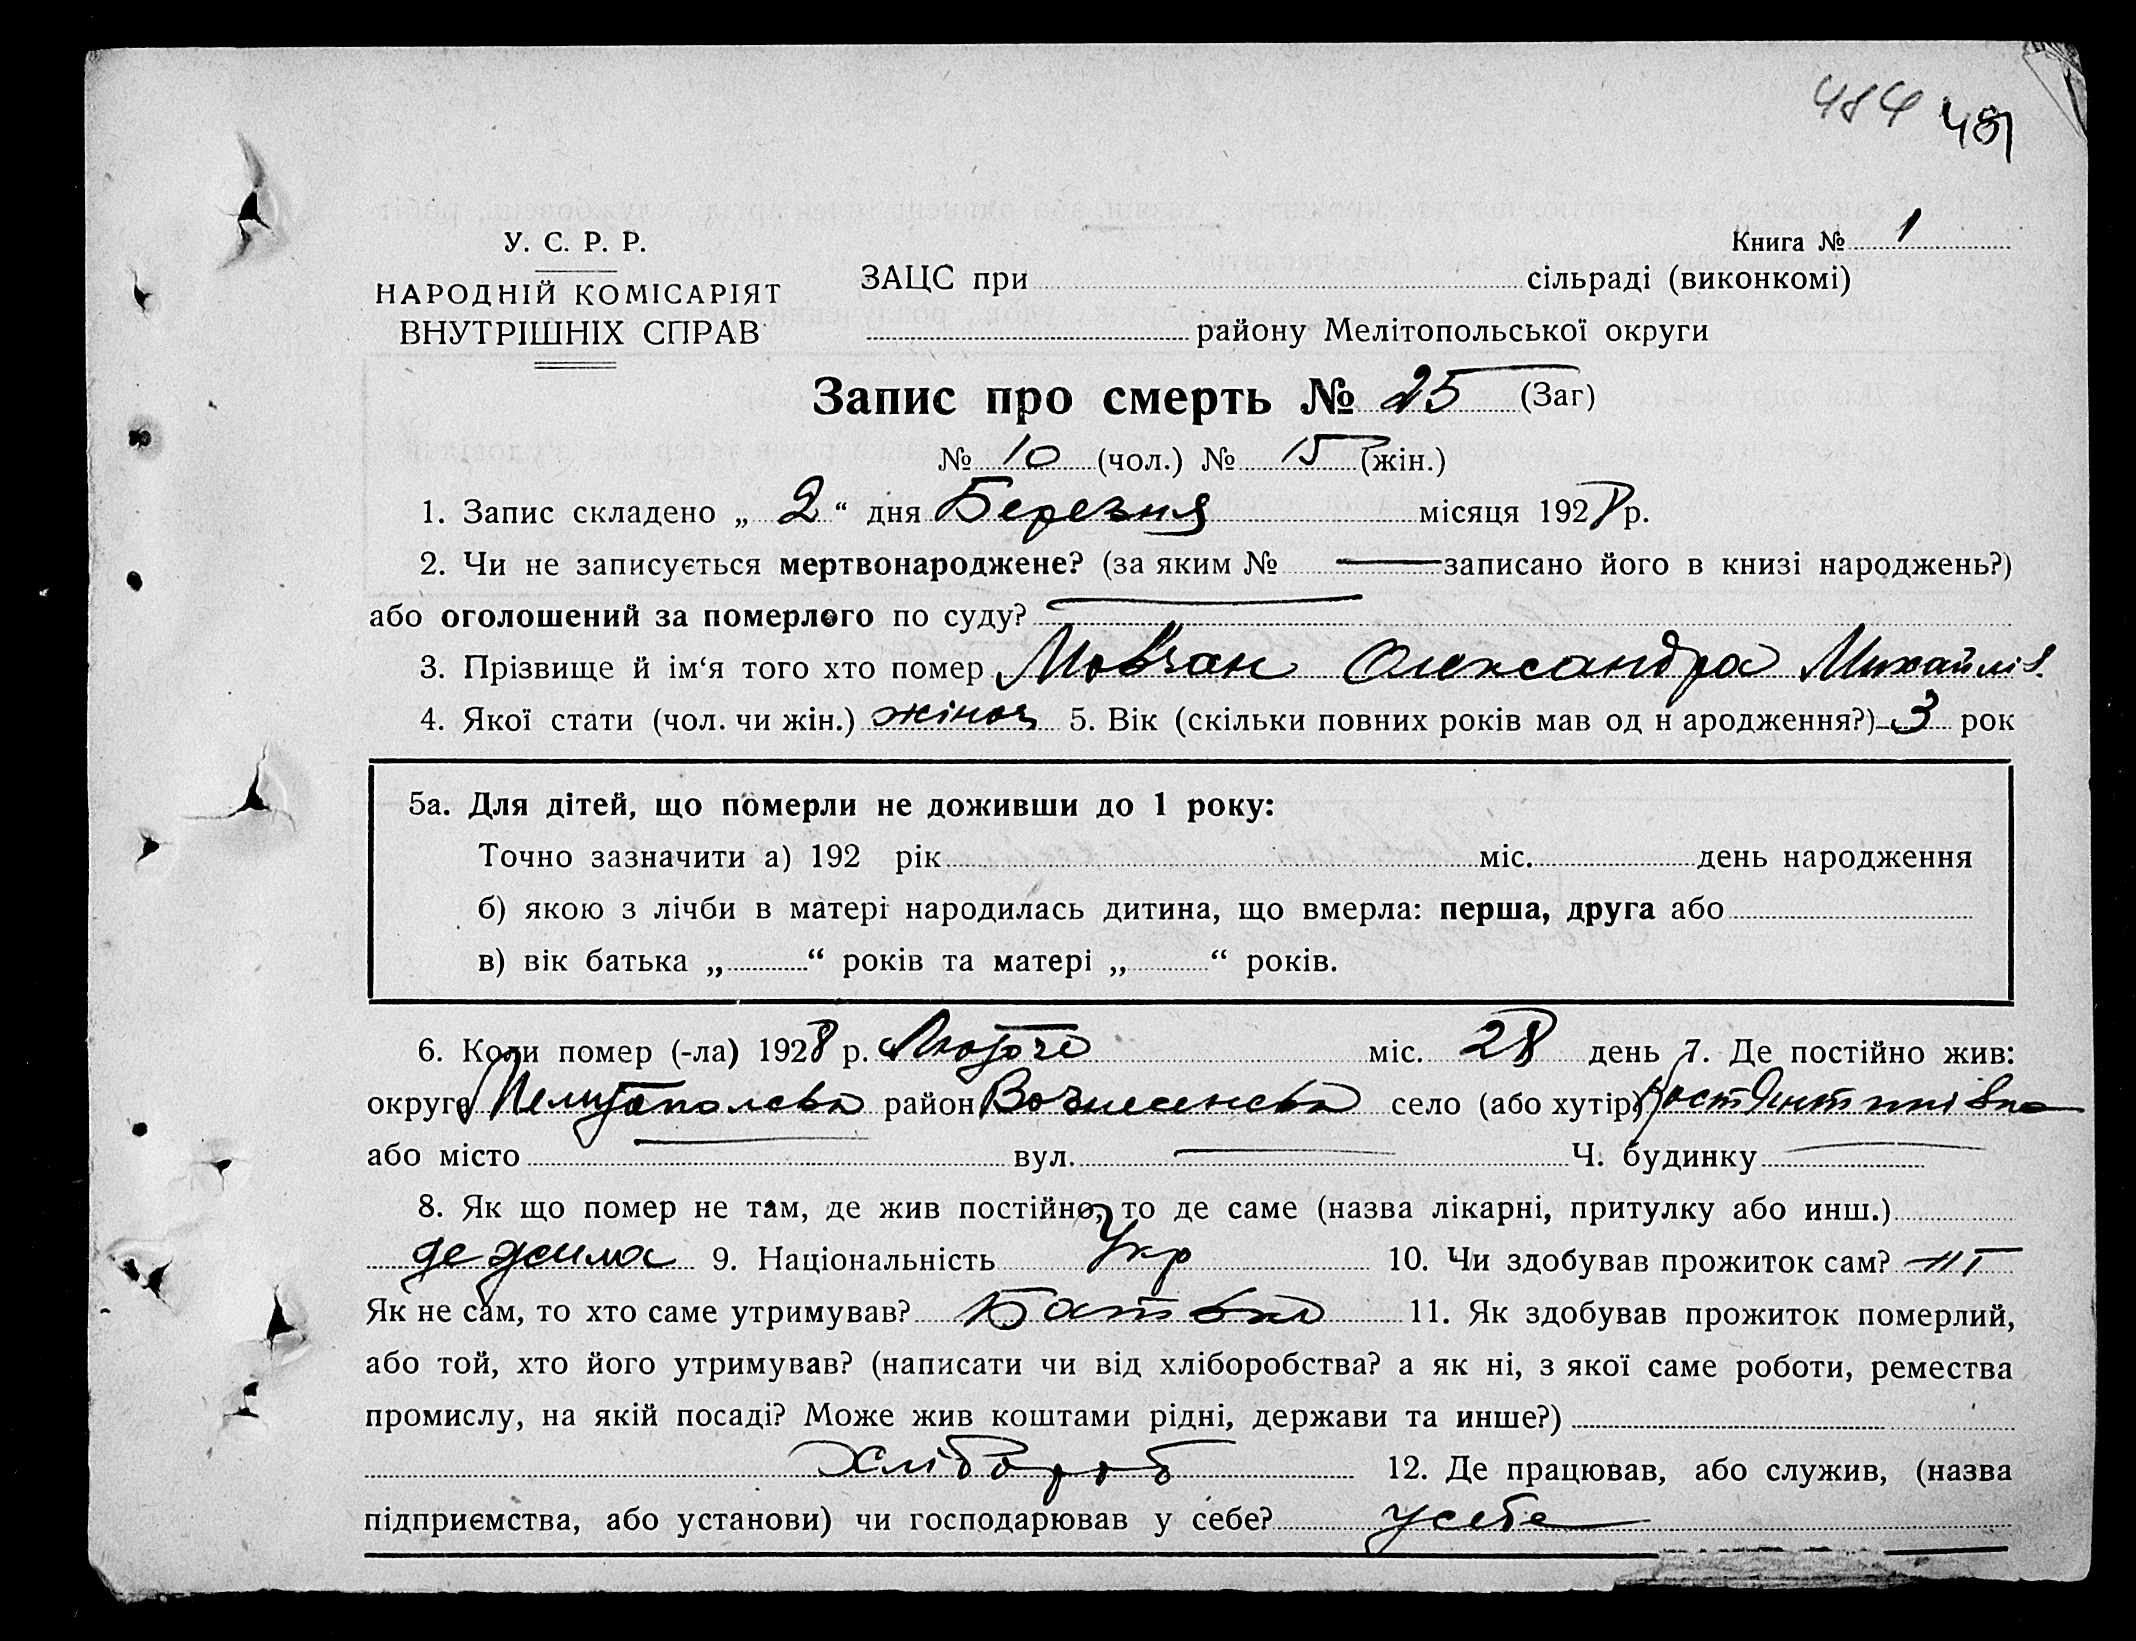 484 481
У. С. Р. Р.
Книга № 1
НАРОДНІЙ КОМІСАРІЯТ
ВНУТРІШНІХ СПРАВ
ЗАЦС при сільраді (виконкомі)
району Мелітопольської округи
Запис про смерть № 25 (Заг)
№ 10 (чол.) № 15 (жін.)
1. Запис складено „ 2 “ дня Березня місяця 1928 р.
2. Чи не записується мертвонароджене? (за яким № — записано його в книзі народжень?)
або оголошений за померлого по суду? —
3. Прізвище й ім‘я того хто помер Мовчан Олександра Михайлів.
4. Якої стати (чол. чи жін.) жіноч 5. Вік (скільки повних років мав од н ародження?) 3 рок
5а. Для дітей, що померли не доживши до 1 року:
Точно зазначити а) 192 рік міс. день народження
б) якою з лічби в матері народилась дитина, що вмерла: перша, друга або
в) вік батька „ “ років та матері „ “ років.
6. Коли помер (-ла) 1928 р. Лютого міс. 28 день 7. Де постійно жив:
округа район Вознесенська село (або хутір)
або місто — вул. — Ч. будинку —
8. Як що помер не там, де жив постійно, то де саме (назва лікарні, притулку або инш.)
де жила 9. Національність Укр 10. Чи здобував прожиток сам? ні
Як не сам, то хто саме утримував? Батько 11. Як здобував прожиток померлий,
або той, хто його утримував? (написати чи від хліборобства? а як ні, з якої саме роботи, ремества
промислу, на якій посаді? Може жив коштами рідні, держави та инше?)
Хлібороб 12. Де працював, або служив, (назва
підприємства, або установи) чи господарював у себе? усебе